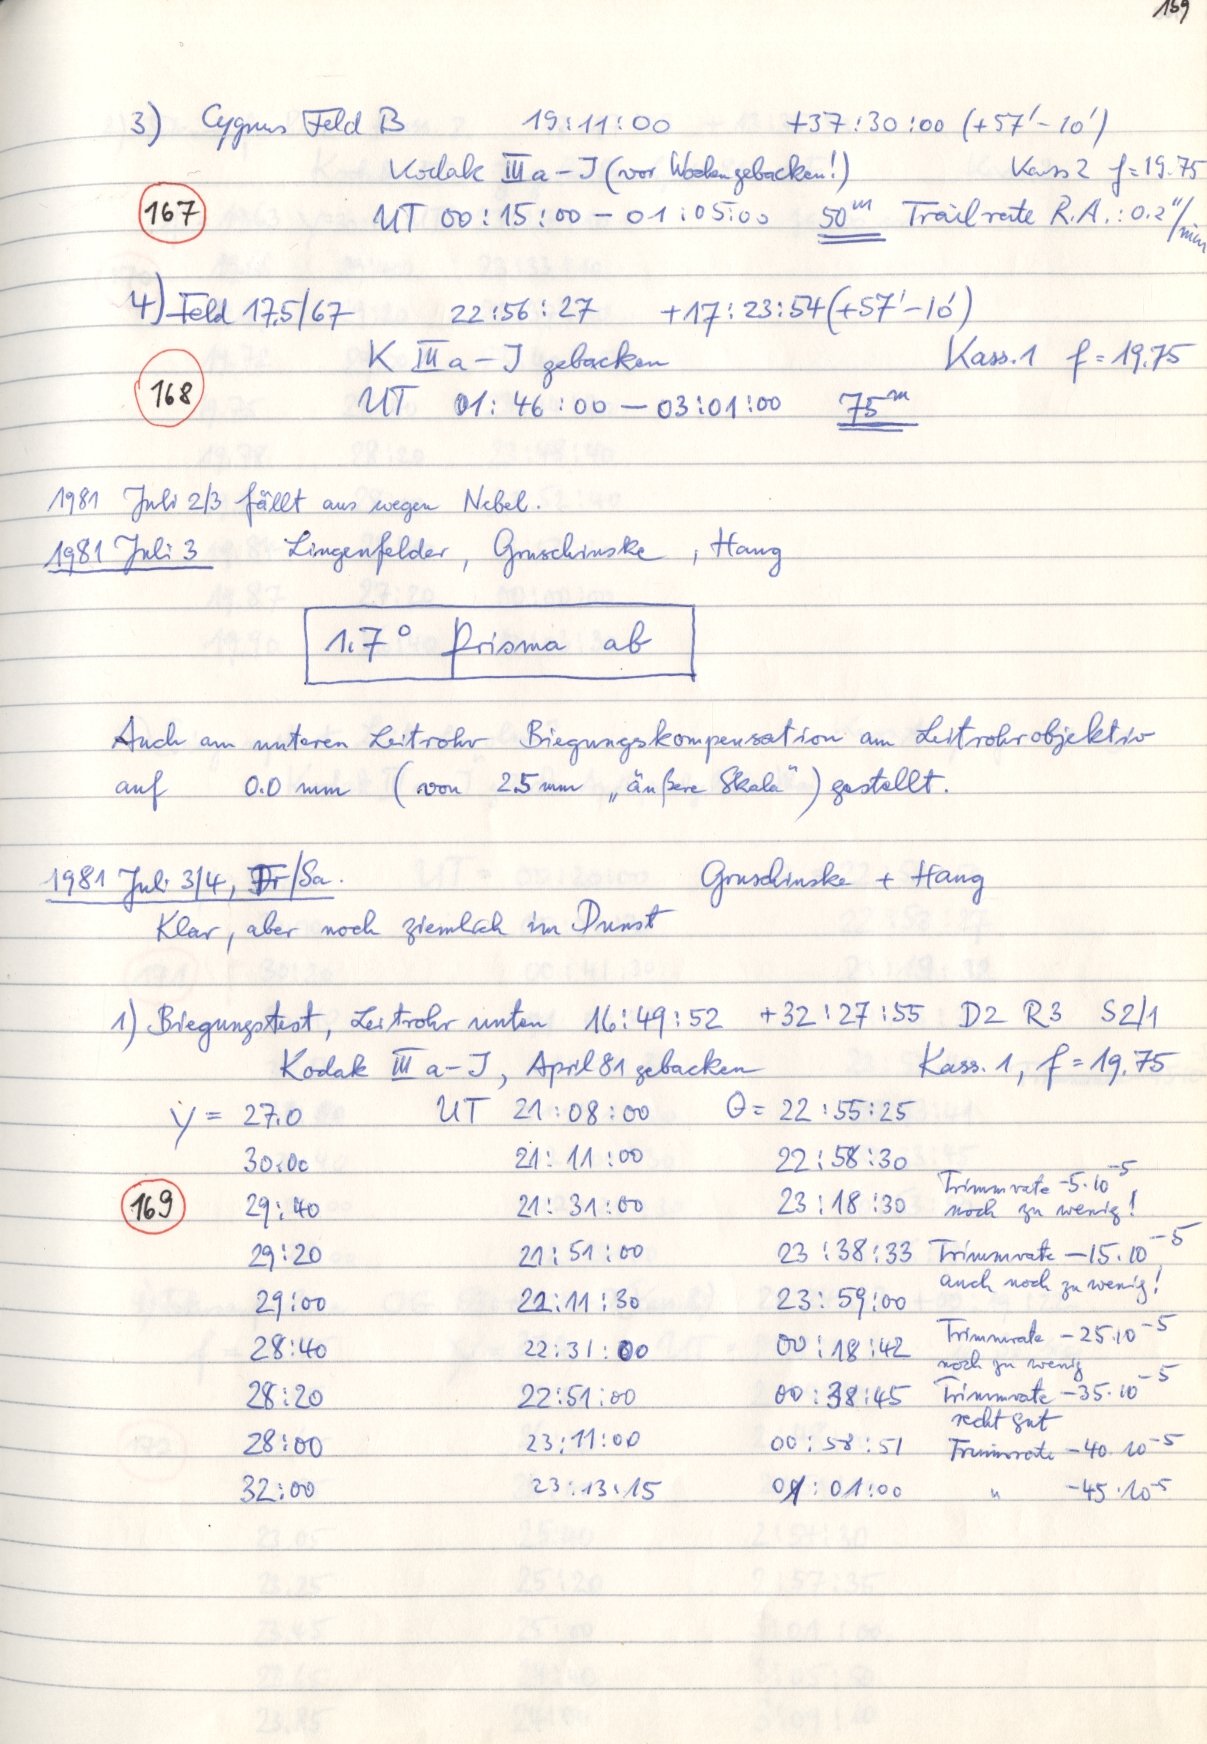 159
3) Cygnus Feld B 19:11:00 +37:30:00 (+57'-10')
Kodak IIIa-J (vor Wochen gebacken!) Kass 2 f=19.75
167 UT 00:15:00 - 01:05:00 50m Trailrate R.A.: 0.2"/min
4) Feld 17.5/67 22:56:27 +17:23:54 (+57'-10')
K IIIa-J gebacken Kass. 1 f=19.75
168 UT 01:46:00 - 03:01:00 75m
1981 Juli 2/3 fällt aus wegen Nebel.
1981 Juli 3 Lingenfelder, Gruschinske, Hang
1.7° Prisma ab
Auch am unteren Leitrohr Biegungskompensation am Leitrohrobjektiv
auf 0.0 mm (von 2.5 mm „äußere Skala") gestellt.
1981 Juli 3/4, Fr/Sa. Gruschinske + Hang
Klar, aber noch ziemlich im Dunst
1) Biegungstest, Leitrohr unten 16:49:52 +32:27:55 D2 R3 S2/1
Kodak IIIa-J, April 81 gebacken Kass. 1, f=19.75
y = 27.0 UT 21:08:00 Θ = 22:55:25
30:00 21:11:00 22:58:30
169 29:40 21:31:00 23:18:30 Trimmrate -5·10⁻⁵ noch zu wenig!
29:20 21:51:00 23:38:33 Trimmrate -15·10⁻⁵ auch noch zu wenig!
29:00 22:11:30 23:59:00
28:40 22:31:00 00:18:42 Trimmrate -25·10⁻⁵ noch zu wenig
28:20 22:51:00 00:38:45 Trimmrate -35·10⁻⁵ recht gut
28:00 23:11:00 00:58:51 Trimmrate -40·10⁻⁵
32:00 23:13:15 01:01:00 " -45·10⁻⁵